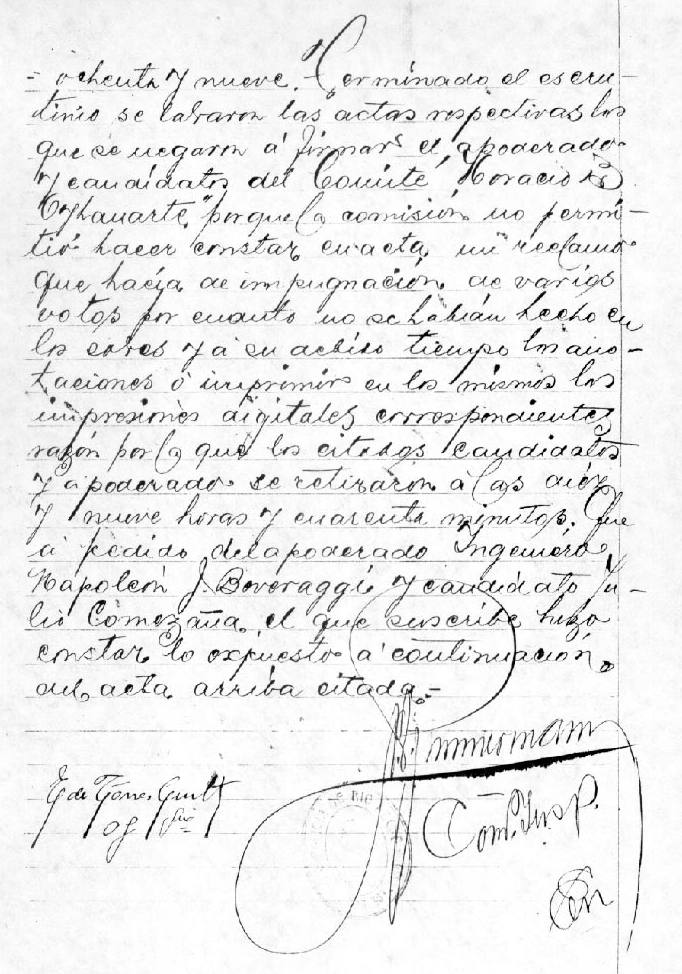 ochenta y nueve. Terminado el escru-
tinio se labraron las actas respectivas los
que se negaron á firmar el apoderado
y candidatos del Comité "Horacio B
Oyhanarte" porque la comisión no permi-
tió hacer constar en acta un reclamo
que hacía de impugnación de varios
votos por cuanto no se habían hecho en
los sobres y á su debido tiempo las ano-
taciones ó imprimir en los mismos las
impresiones digitales correspondientes
razón por la que los citados candidatos
y apoderado se retiraron á las diez
y nueve horas y cuarenta minutos. Que
á pedido del apoderado Ingeniero
Napoleón J. Boveraggi y candidato Ju-
lio Comezaña, el que suscribe hizo
constar lo expuesto á continuación
del acta arriba citada.-
Zimmermann
Com. Insp.